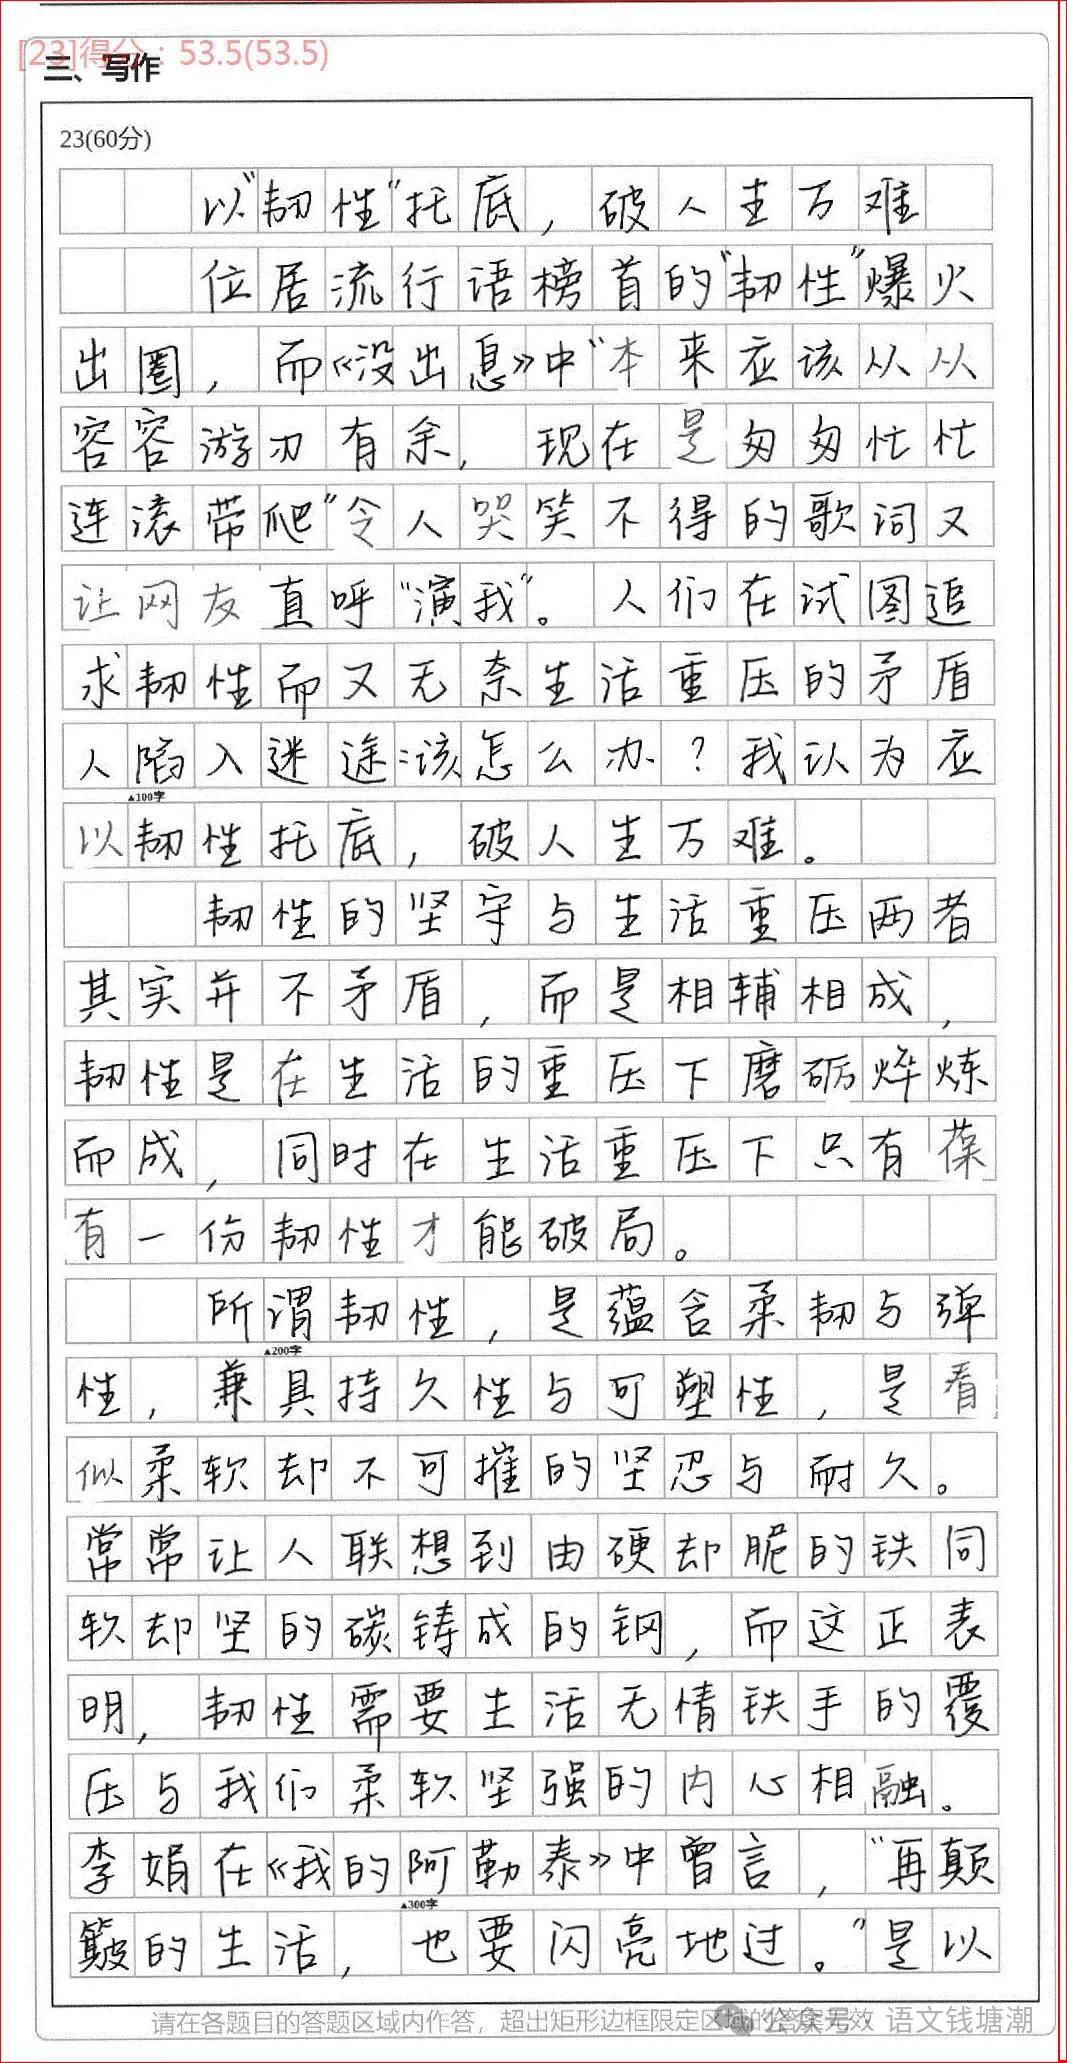 [23]得分：53.5(53.5)
三、写作
23(60分)
以"韧性"托底，破人生万难
位居流行语榜首的"韧性"爆火
出圈，而《没出息》中"本来应该从从
容容游刃有余，现在是匆匆忙忙
连滚带爬"令人哭笑不得的歌词又
让网友直呼"演我"。人们在试图追
求韧性而又无奈生活重压的矛盾
人陷入迷途：该怎么办？我认为应
▲100字
以韧性托底，破人生万难。
韧性的坚守与生活重压两者
其实并不矛盾，而是相辅相成，
韧性是在生活的重压下磨砺焠炼
而成，同时在生活重压下只有葆
有一份韧性才能破局。
所谓韧性，是蕴含柔韧与弹
▲200字
性，兼具持久性与可塑性，是看
似柔软却不可摧的坚忍与耐久。
常常让人联想到由硬却脆的铁同
软却坚的碳铸成的钢，而这正表
明，韧性需要生活无情铁手的覆
压与我们柔软坚强的内心相融。
李娟在《我的阿勒泰》中曾言，"再颠
▲300字
簸的生活，也要闪亮地过。"是以
请在各题目的答题区域内作答，超出矩形边框限定区域的答案无效
公众号·语文钱塘潮